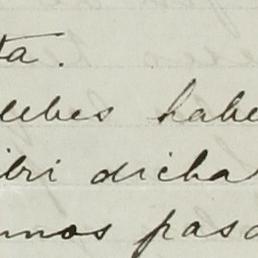 ta.
debes habe
ibri dicha
mos pasa